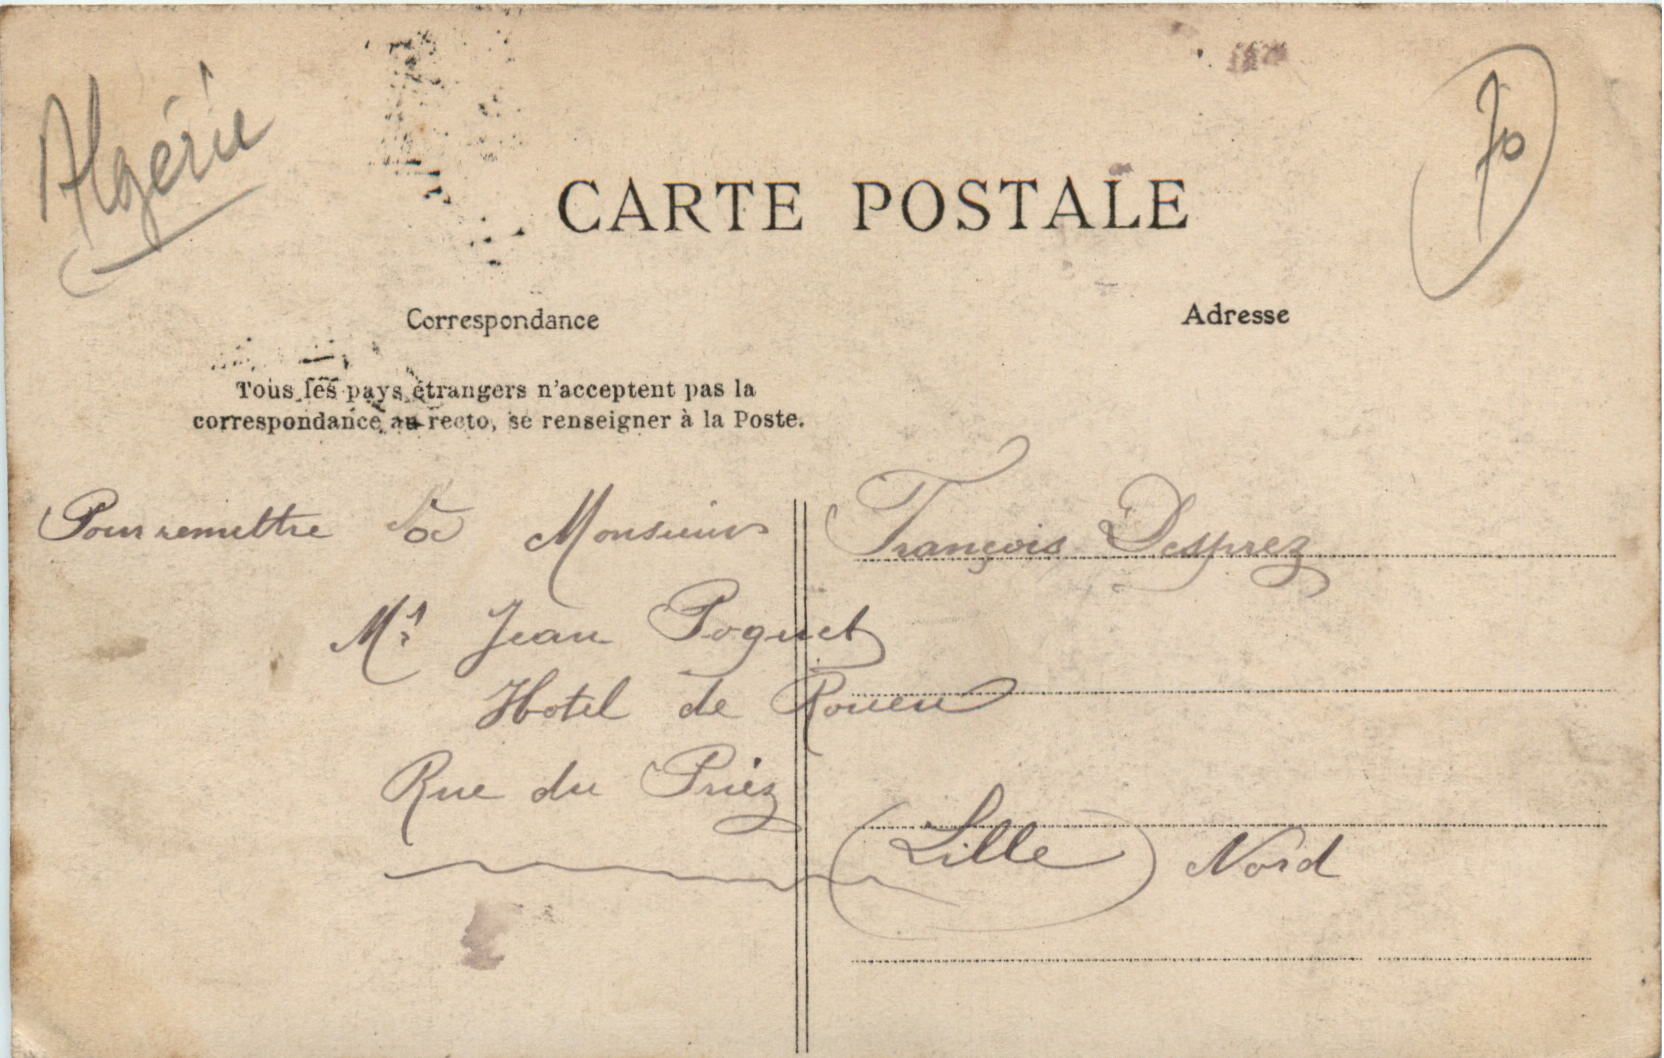 Algérie
70
CARTE POSTALE
Correspondance
Adresse
Tous les pays étrangers n'acceptent pas la
correspondance au recto, se renseigner à la Poste.
Pour remettre à Monsieur François Desprez
Mr Jean Poguet
Hotel de Rouen
Rue du Priez
(Lille) Nord